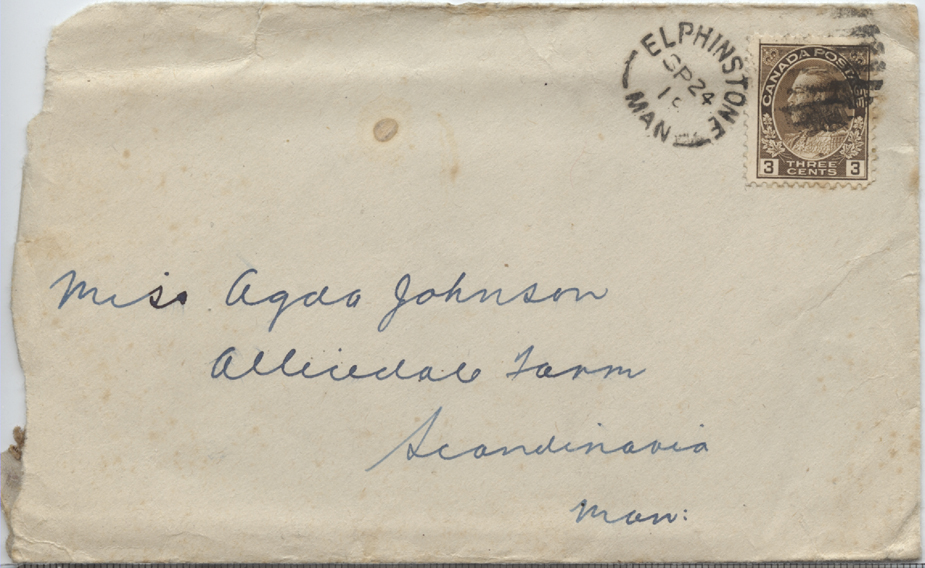 ELPHINSTONE
SP 24
MAN
CANADA POSTAGE
3 THREE CENTS 3
Miss Agda Johnson
Farm
Scandinavia
Man: